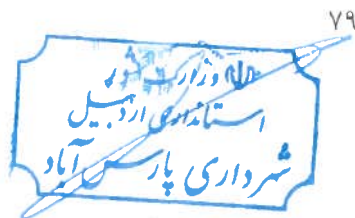 ۷۹
وزارت کشور
استانداری اردبیل
شهرداری پارس آباد